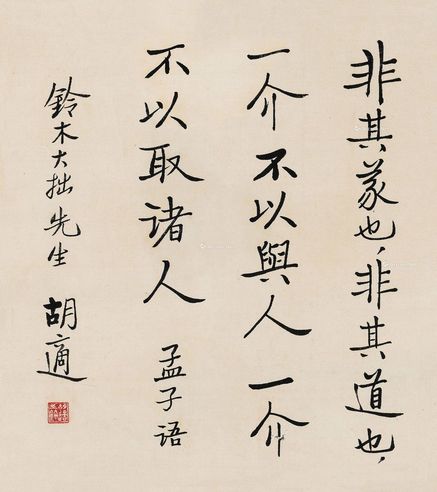 非其義也，非其道也，
一介不以與人 一介
不以取诸人 孟子语
鈴木大拙先生 胡適